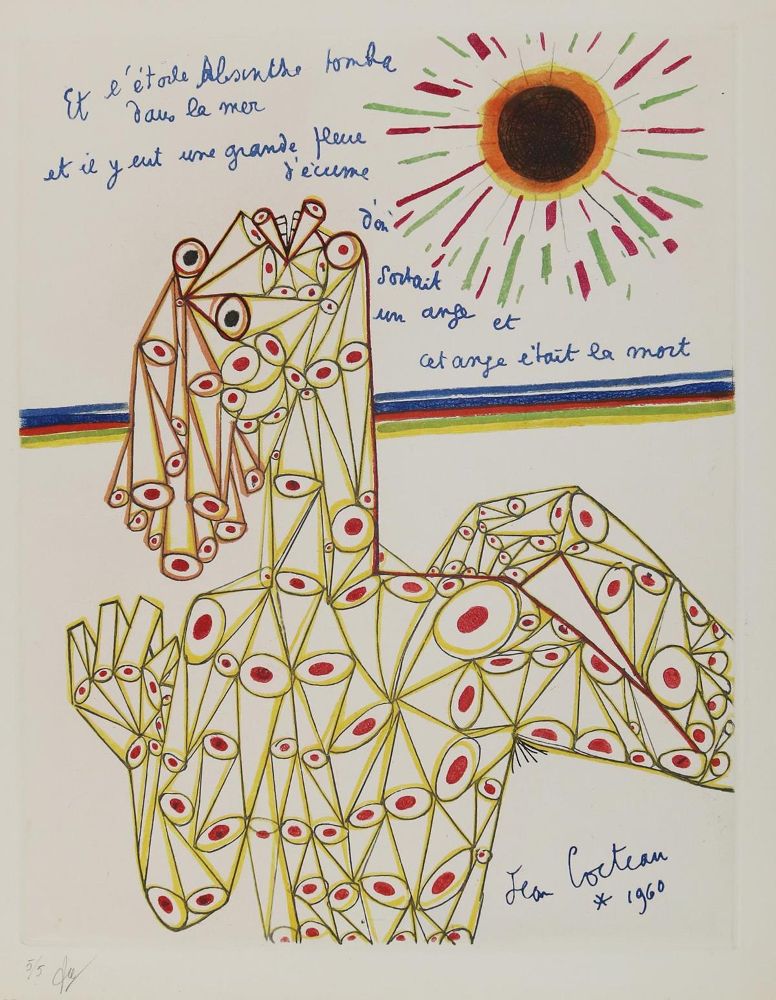 Et l'étoile Absinthe tomba
dans la mer
et il y eut une grande fleur
d'écume
d'où
Sortait
un ange et
cet ange était la mort
Jean Cocteau
* 1960
5/5